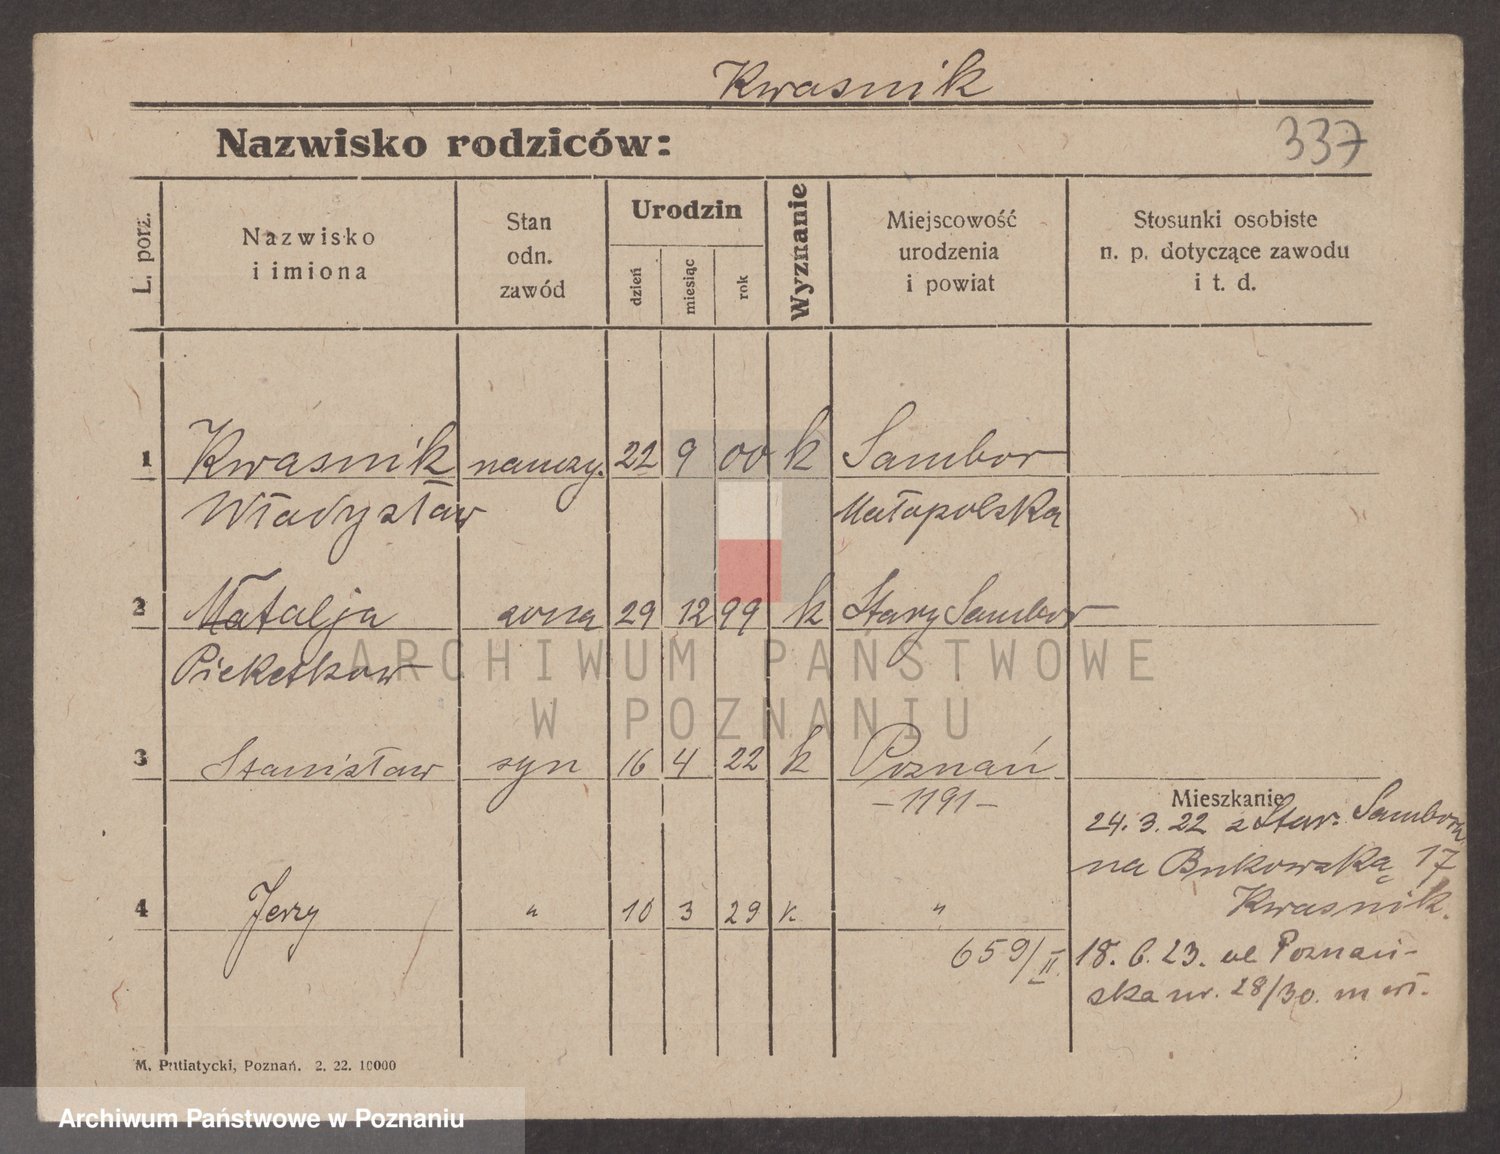 Kwasnik
Nazwisko rodziców:
337
L. porz.
Nazwisko
i imiona
Stan
odn.
zawód
Urodzin
dzień
miesiąc
rok
Wyznanie
Miejscowość
urodzenia
i powiat
Stosunki osobiste
n. p. dotyczące zawodu
i t. d.
1 Kwasnik nauczy. 22 9 00 k Sambor
Władysław Małopolska
2 Natalja żona 29 12 99 k Stary Sambor
ARCHIWUM PAŃSTWOWE
W POZNANIU
3 Stanisław syn 16 4 22 k Poznań
Mieszkanie
-1191-
24. 3. 22 z Star. Sambora
na Bukowską 17
Kwasnik.
4 Jerzy " 10 3 29 k "
659/II.
18. 6. 23. ul Poznań-
ska nr. 28/30.
M. Putiatycki, Poznań. 2. 22. 10000
Archiwum Państwowe w Poznaniu